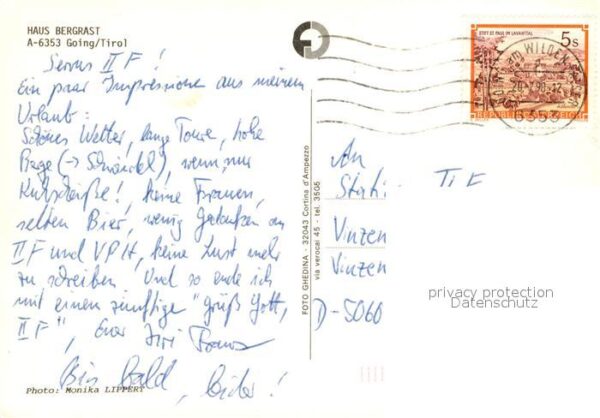 HAUS BERGRAST
A-6353 Going/Tirol
Servus II F !
Ein paar Impressionen aus meinem
Urlaub:
Schönes Wetter, lange Touren, hohe
Berge (→ Schwindel), wenn, nur
Kuhscheiße!, keine Frauen,
selten Bier, wenig Gedanken an
II F und VPH, keine Lust mehr
zu schreiben. Und so ende ich
mit einem zünftigen "Grüß Gott,
II F", Euer
Bis Bald,
Photo: Monika LIPPERT
FOTO GHEDINA - 32043 Cortina d'Ampezzo
via verocai 45 - tel. 3505
STIFT ST. PAUL IM LAVANTTAL
5s
REPUBLIK ÖSTERREICH
am WILDEN
6353
An
II F
Vinzen
Vinzen
D-5060
privacy protection
Datenschutz